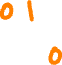 01
0